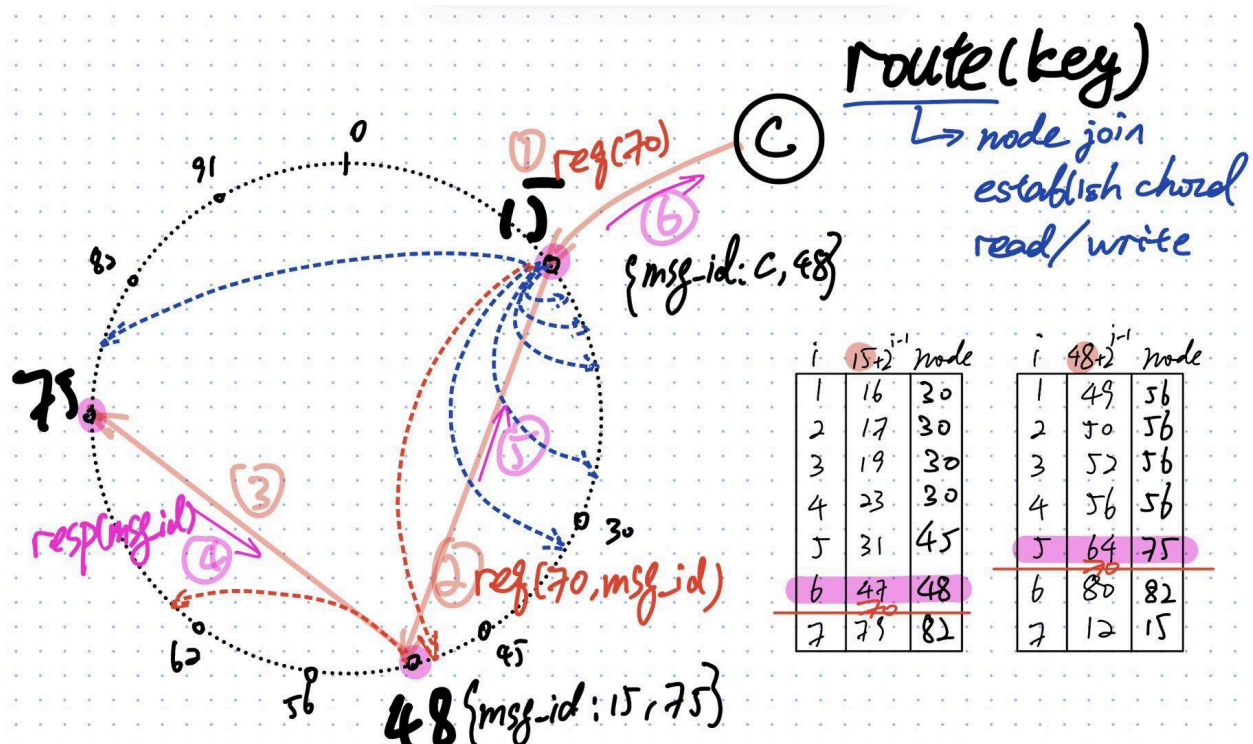 route(key)
↳ node join
establish chord
read/write
0
91
82
75
62
56
48
45
30
15
C
① req(70)
⑥
{msg-id: C, 48}
⑤
③
resp(msg_id)
④
② req(70, msg_id)
{msg-id: 15, 75}
i 15+2^i-1 node
1 16 30
2 17 30
3 19 30
4 23 30
5 31 45
6 47 48
70
7 79 82
i 48+2^i-1 node
1 49 56
2 50 56
3 52 56
4 56 56
5 64 75
70
6 80 82
7 12 15